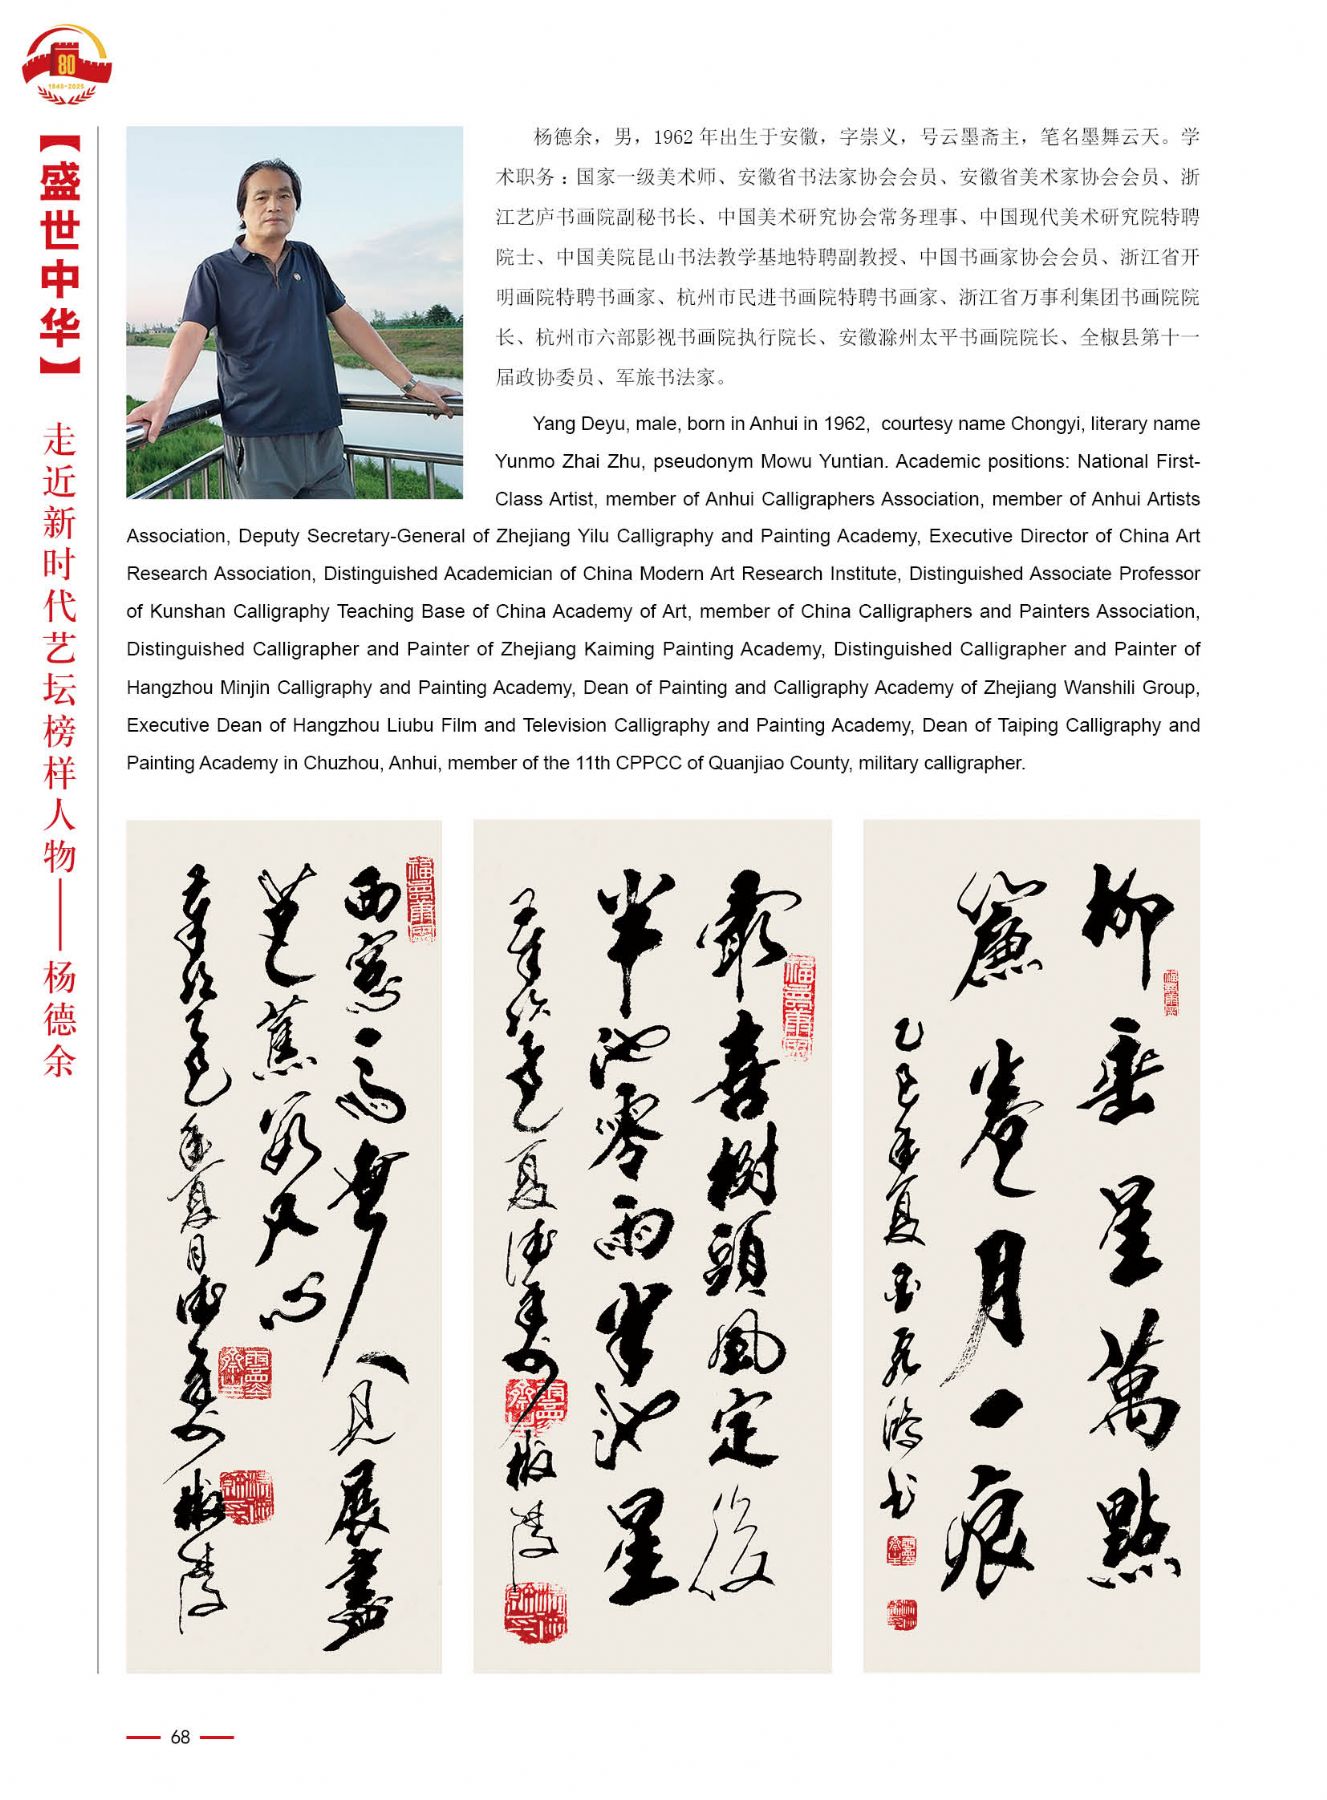 80
1945-2025
【盛世中华】
走近新时代艺坛榜样人物——杨德余
杨德余，男，1962年出生于安徽，字崇义，号云墨斋主，笔名墨舞云天。学
术职务：国家一级美术师、安徽省书法家协会会员、安徽省美术家协会会员、浙
江艺庐书画院副秘书长、中国美术研究协会常务理事、中国现代美术研究院特聘
院士、中国美院昆山书法教学基地特聘副教授、中国书画家协会会员、浙江省开
明画院特聘书画家、杭州市民进书画院特聘书画家、浙江省万事利集团书画院院
长、杭州市六部影视书画院执行院长、安徽滁州太平书画院院长、全椒县第十一
届政协委员、军旅书法家。
Yang Deyu, male, born in Anhui in 1962, courtesy name Chongyi, literary name
Yunmo Zhai Zhu, pseudonym Mowu Yuntian. Academic positions: National First-
Class Artist, member of Anhui Calligraphers Association, member of Anhui Artists
Association, Deputy Secretary-General of Zhejiang Yilu Calligraphy and Painting Academy, Executive Director of China Art
Research Association, Distinguished Academician of China Modern Art Research Institute, Distinguished Associate Professor
of Kunshan Calligraphy Teaching Base of China Academy of Art, member of China Calligraphers and Painters Association,
Distinguished Calligrapher and Painter of Zhejiang Kaiming Painting Academy, Distinguished Calligrapher and Painter of
Hangzhou Minjin Calligraphy and Painting Academy, Dean of Painting and Calligraphy Academy of Zhejiang Wanshili Group,
Executive Dean of Hangzhou Liubu Film and Television Calligraphy and Painting Academy, Dean of Taiping Calligraphy and
Painting Academy in Chuzhou, Anhui, member of the 11th CPPCC of Quanjiao County, military calligrapher.
柳垂星萬點
簾卷月一痕
乙巳年夏
最喜樹頭風定後
半池零雨半池星
夏
西窗無人見展書
芭蕉
年夏月
68